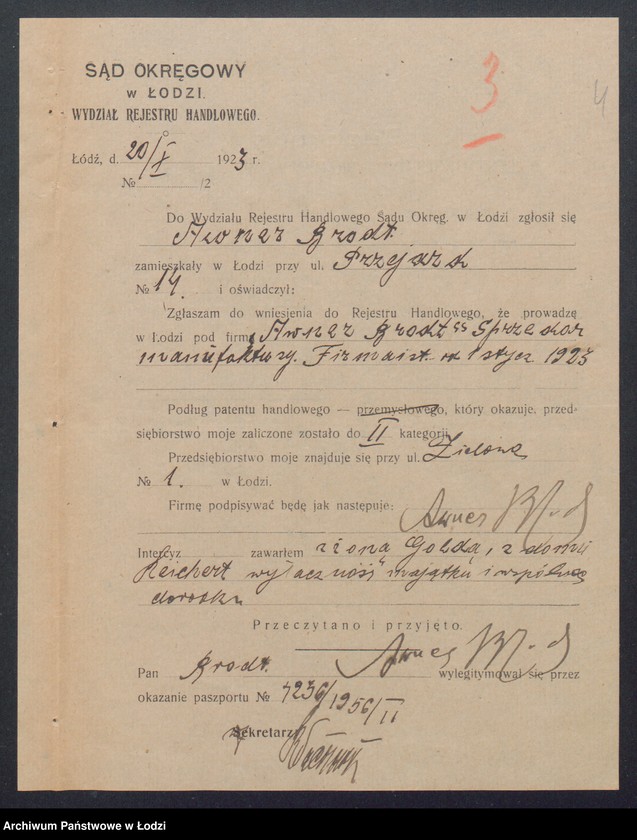 3
4
SĄD OKRĘGOWY
w ŁODZI.
WYDZIAŁ REJESTRU HANDLOWEGO.
Łódź, d. 20/X 1923 r.
№ /2
Do Wydziału Rejestru Handlowego Sądu Okręg. w Łodzi zgłosił się
Awner Brodt.
zamieszkały w Łodzi przy ul. Przejazd
№ 14. i oświadczył:
Zgłaszam do wniesienia do Rejestru Handlowego, że prowadzę
w Łodzi pod firmą „Awner Brodt" Sprzedaż
manufaktury. Firma ist. od 1 stycz 1923
Podług patentu handlowego — przemysłowego, który okazuję, przed-
siębiorstwo moje zaliczone zostało do II kategorji
Przedsiębiorstwo moje znajduje się przy ul. Zielona
№ 1. w Łodzi.
Firmę podpisywać będę jak następuje:
Awner Brodt
Intercyz zawarłem z żoną Golda, z domu
Reichert wyłączność majątku i wspólność
dorobku
Przeczytano i przyjęto.
Awner Brodt
Pan Brodt. wylegitymował się przez
okazanie paszportu № 4236/1956/II
Sekretarz
Archiwum Państwowe w Łodzi